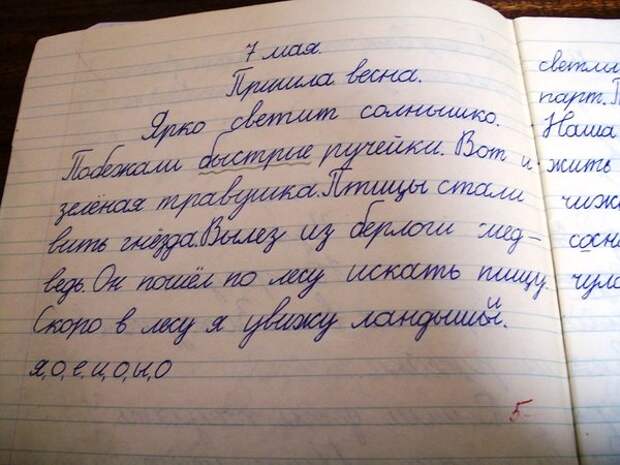 7 мая.
Пришла весна.
Ярко светит солнышко.
Побежали быстрые ручейки. Вот и
зелёная травушка. Птицы стали
вить гнёзда. Вылез из берлоги мед-
ведь. Он пошёл по лесу искать пищу.
Скоро в лесу я увижу ландыши.
я, о, е, и, о, ы, о
5-
светли
парт. П
Наша
жить
чиж
сосн